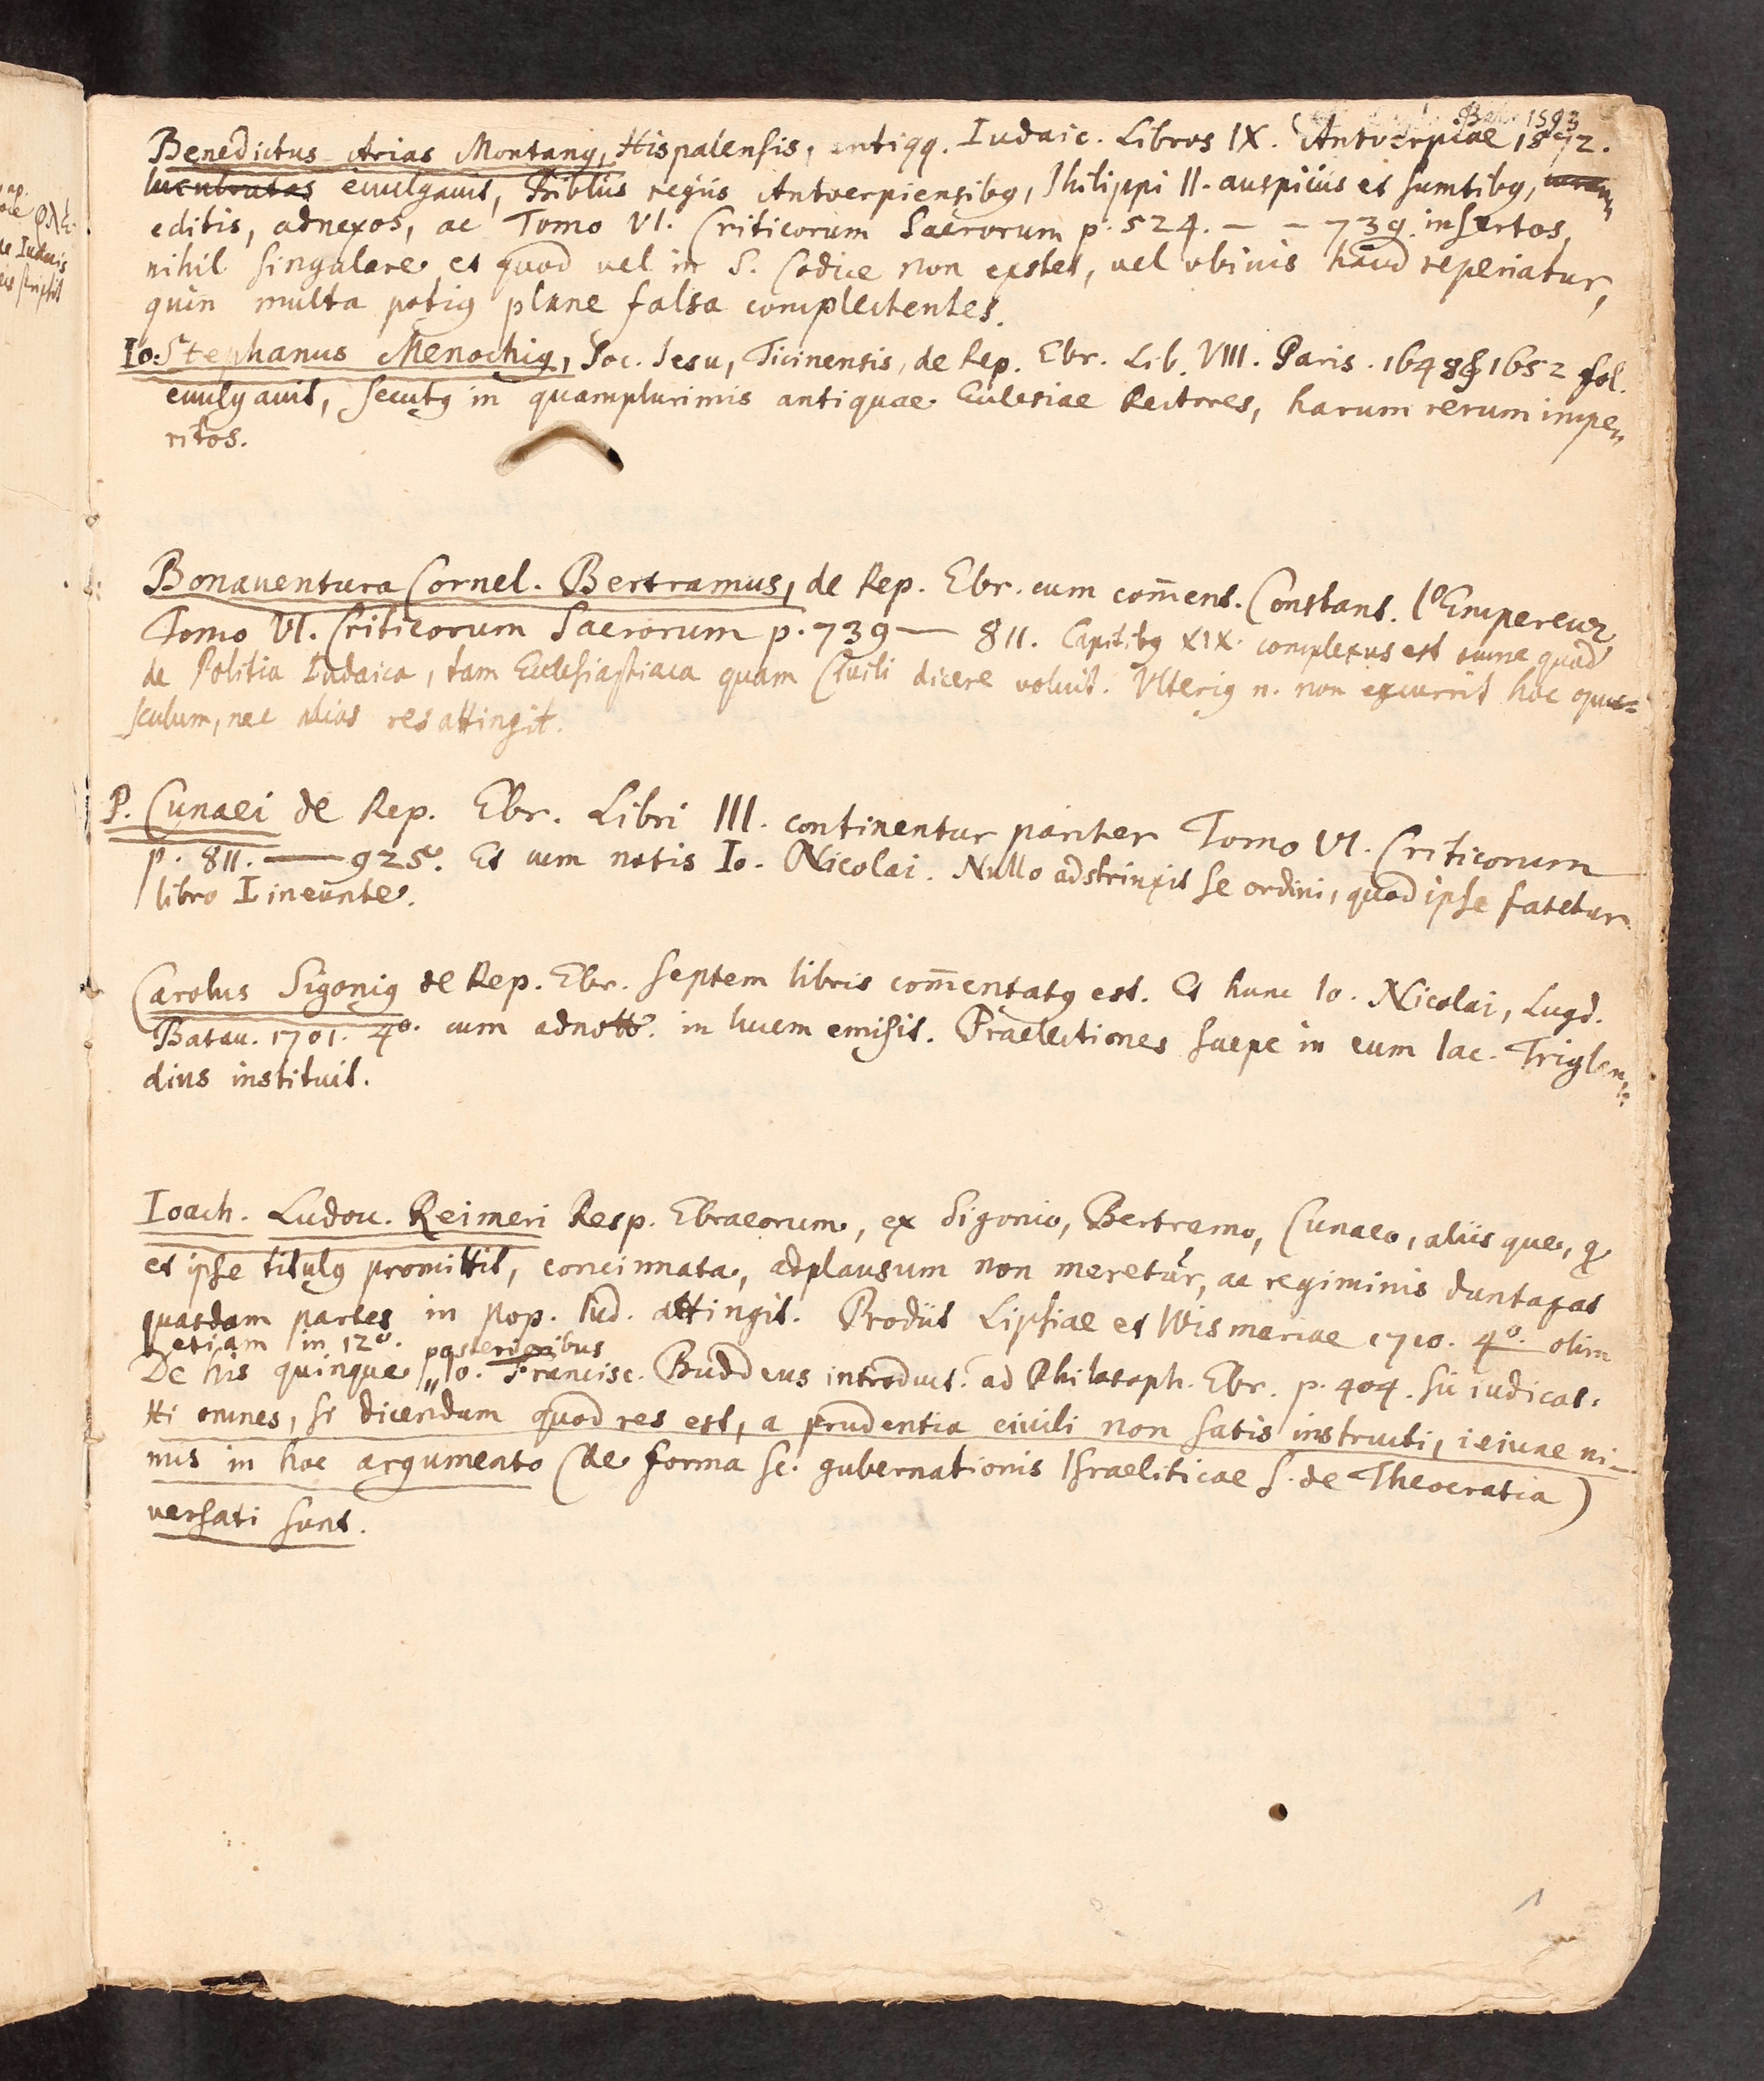 Bata 1593
Benedictus Arias Montanꝰ, Hispalensis, antiqq. Iudaic. Libros IX. Antverpiae 1592.
lucubratas euulgauit, Bibliis regiis Antverpiensibꝰ, Philippi II. auspiciis et sumtibꝰ,
editis, adnexos, ac Tomo VI. Criticorum Sacrorum p. 524. – – 739. insertos,
nihil singulare et quod vel in S. Codice non exstet, vel vbiuis haud reperiatur,
quin multa potiꝰ plane falsa complectentes.
Io: Stephanus Menochiꝰ, Soc. Iesu, Ticinensis, de Rep. Ebr. Lib. VIII. Paris. 1648 & 1652 fol.
euulgauit, secutꝰ in quamplurimis antiquae Ecclesiae Rectores, harum rerum impe„
ritos.
Bonauentura Cornel. Bertramus, de Rep. Ebr. cum com̄ent. Constant. l'Empereur
Tomo VI. Criticorum Sacrorum p. 739 — 811. Capitibꝰ XIX. complexus est omne quod
de Politia Iudaica, tam Ecclesiastiaca quam Ciuili dicere voluit. Vlteriꝰ n. non excurrit hoc opus=
sculum, nec alias res attingit.
P. Cunaei de Rep. Ebr. Libri III. continentur pariter Tomo VI. Criticorum
p. 811. — 925. Et cum notis Io. Nicolai. Nullo adstrinxit se ordini, quod ipse fatetur
libro I ineunte.
Carolus Sigoniꝰ de Rep. Ebr. septem libris com̄entatꝰ est. Et hunc Io. Nicolai, Lugd.
Batau. 1701. 4º. cum adnott. in lucem emisit. Praelectiones saepe in eum Iac. Triglan„
dius instituit.
Ioach. Ludou. Reimeri Resp. Ebraeorum, ex Sigonio, Bertramo, Cunaeo, aliisque, q
et ipse titulꝰ promittit, concinnata, adplausum non meretur, ac regiminis duntaxat
quasdam partes in pop. Iud. attingit. Prodiit Lipsiae et Wismariae 1710. 4º. olim
etiam in 12º. posterioribus
De his quinque „ Io. Francisc. Buddeus introduct. ad Philosoph. Ebr. p. 404. sic iudicat.
Hi omnes, si dicendum quod res est, a prudentia ciuili non satis instructi, ieiune ni–
mis in hoc argumento (de forma sc. gubernationis Israeliticae s. de Theocratia)
versati sunt.
1